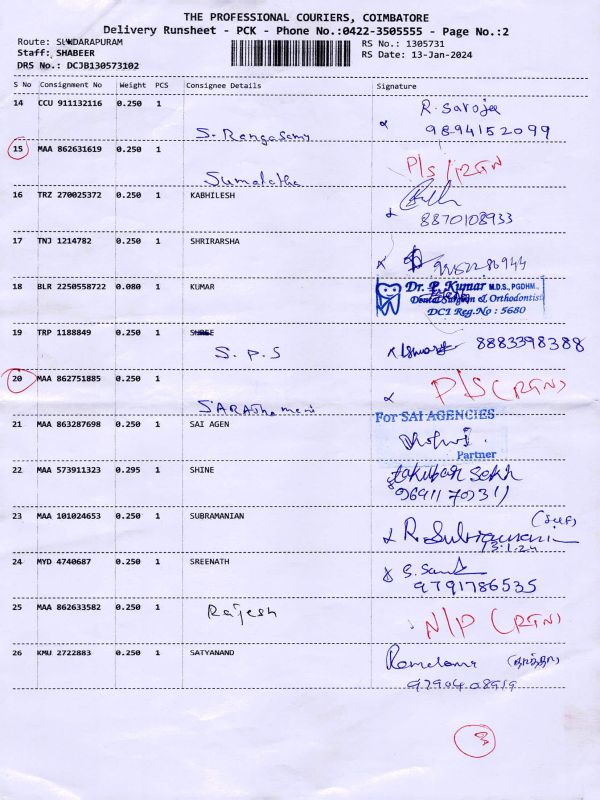 THE PROFESSIONAL COURIERS, COIMBATORE
Delivery Runsheet - PCK - Phone No.:0422-3505555 - Page No.:2
Route: SUNDARAPURAM RS No.: 1305731
Staff: SHABEER RS Date: 13-Jan-2024
DRS No.: DCJB130573102
S No Consignment No Weight PCS Consignee Details Signature
14 CCU 911132116 0.250 1 S. Rengasamy R. Saroja
9894152099
15 MAA 862631619 0.250 1 Sumalatha P/S / RTN
16 TRZ 270025372 0.250 1 KABHILESH
8870108933
17 TNJ 1214782 0.250 1 SHRIRARSHA
18 BLR 2250558722 0.080 1 KUMAR Dr. P. Kumar M.D.S., PGDHM.,
Dental Surgeon & Orthodontist
DCI Reg.No : 5680
19 TRP 1188849 0.250 1 S.P.S 8883398388
20 MAA 862751885 0.250 1 P/S (RTN)
21 MAA 863287698 0.250 1 SAI AGEN For SAI AGENCIES
Partner
22 MAA 573911323 0.295 1 SHINE
23 MAA 101024653 0.250 1 SUBRAMANIAN R. Subramani (Self)
13.1.24
24 MYD 4740687 0.250 1 SREENATH
9791786535
25 MAA 862633582 0.250 1 Rajesh N/P (RTN)
26 KMU 2722883 0.250 1 SATYANAND